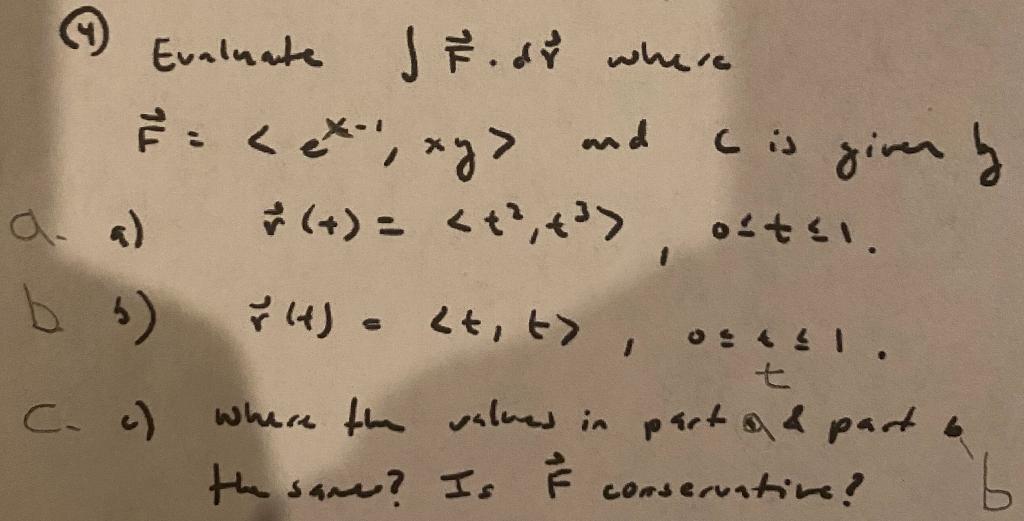 (4) Evaluate ∫ F⃗ · dr⃗ where
F⃗ = < e^{x-1}, xy > and C is given by
a. a) r⃗(t) = <t², t³> , 0≤t≤1.
b b) r⃗(t) = <t, t> , 0≤t≤1.
t
C. c) where the values in part a & part b
b
the same? Is F⃗ conservative?